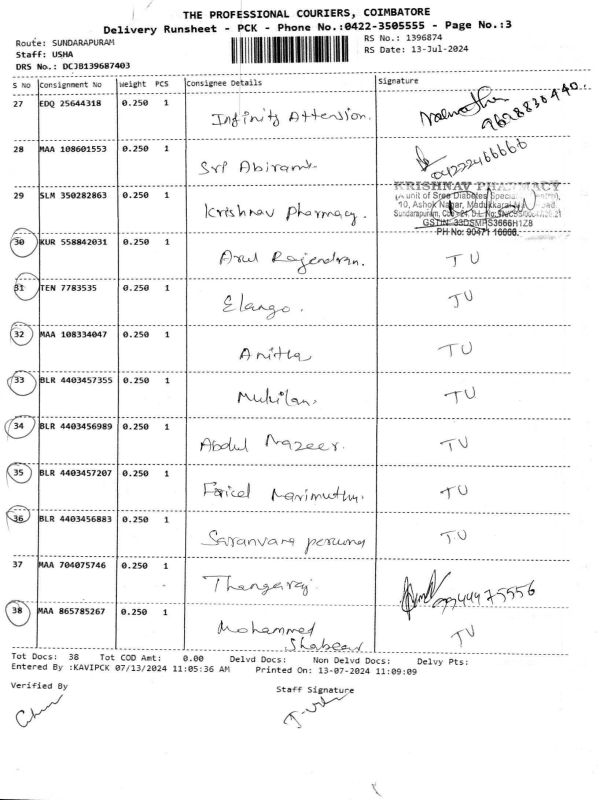 THE PROFESSIONAL COURIERS, COIMBATORE
Delivery Runsheet - PCK - Phone No.:0422-3505555 - Page No.:3
Route: SUNDARAPURAM
RS No.: 1396874
Staff: USHA
RS Date: 13-Jul-2024
DRS No.: DCJB139687403
S No Consignment No Weight PCS Consignee Details Signature
27 EDQ 25644318 0.250 1 Infinity Attension.
28 MAA 108601553 0.250 1 Sri Abirami 04222466666
29 SLM 350282863 0.250 1 Krishnav Pharmacy.
KRISHNAV PHARMACY
(A unit of Sree Diabetes
10, Ashok Nagar,
Sundarapuram,
GSTIN: 33DSMPS3666H1Z8
PH No: 90471 16666.
30 KUR 558842031 0.250 1 Arul Rajendran. TU
31 TEN 7783535 0.250 1 Elango. TU
32 MAA 108334047 0.250 1 Anitha TU
33 BLR 4403457355 0.250 1 Mukilan. TU
34 BLR 4403456989 0.250 1 Abdul Nazeer. TU
35 BLR 4403457207 0.250 1 Marimuthu. TU
36 BLR 4403456883 0.250 1 TU
37 MAA 704075746 0.250 1 Thangaraj. 9944475556
38 MAA 865785267 0.250 1 Mohammed TU
Tot Docs: 38 Tot COD Amt: 0.00 Delvd Docs: Non Delvd Docs: Delvy Pts:
Entered By :KAVIPCK 07/13/2024 11:05:36 AM Printed On: 13-07-2024 11:09:09
Verified By
Staff Signature